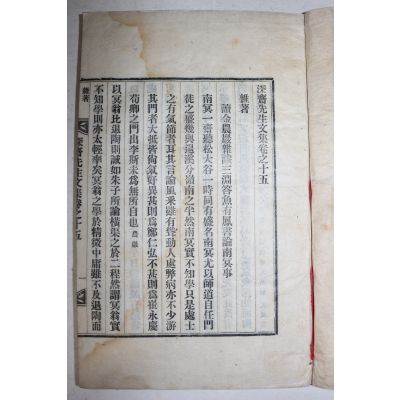 深齋先生文集卷之十五
雜著
讀金農巖雜識三淵答魚有鳳書論南冥事
南冥一齋聽松大谷一時同有盛名南冥尤以師道自任門
徒之盛幾與退溪分嶺南之半然南冥實不知學只是處士
之有氣節者耳其言論風采雖有聳動人處弊病亦不少游
其門者大抵皆尙氣好異甚則爲鄭仁弘不甚則爲崔永慶
荀卿之門出李斯未爲無所自也 農巖
以冥翁比退陶則誠如朱子所論橫渠之於二程然謂冥翁實
不知學則亦太輕率矣冥翁之學於精微中庸雖不及退陶而
雜著
深齋先生文集卷之十五
一